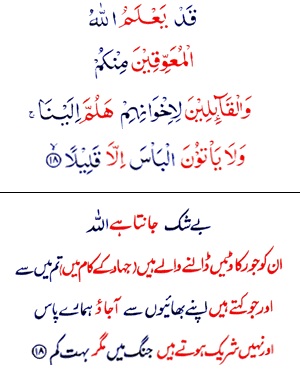 قَدْ يَعْلَمُ اللّٰهُ
الْمُعَوِّقِيْنَ مِنْكُمْ
وَالْقَآىِٕلِيْنَ لِاِخْوَانِهِمْ هَلُمَّ اِلَيْنَا ۚ
وَلَا يَاْتُوْنَ الْبَاْسَ اِلَّا قَلِيْلًا ۙ﴿۱۸﴾
بے شک جانتا ہے اللہ
ان کو جو رکاوٹیں ڈالنے والے ہیں (جہاد کے کام میں) تم میں سے
اور جو کہتے ہیں اپنے بھائیوں سے آجاؤ ہمارے پاس
اور نہیں شریک ہوتے ہیں جنگ میں مگر بہت کم ﴿۱۸﴾